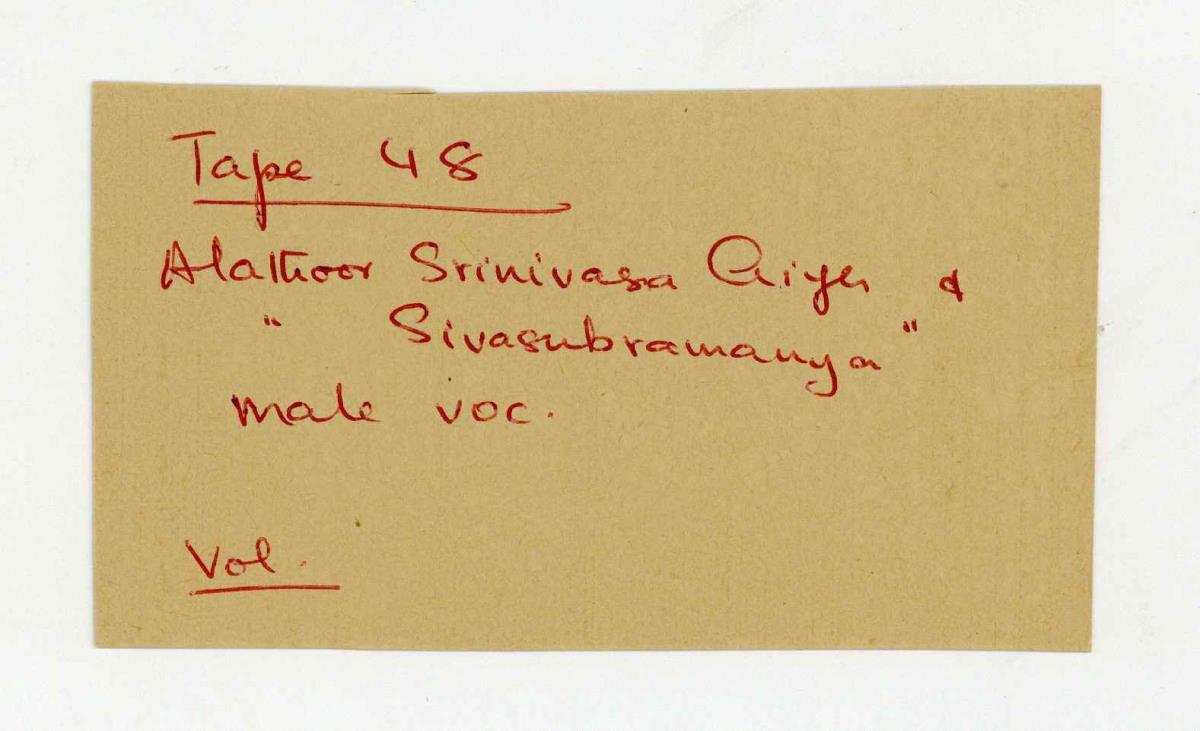 Tape 48
Alathoor Srinivasa Aiyer &
" Sivasubramanya "
male voc.
Vol.